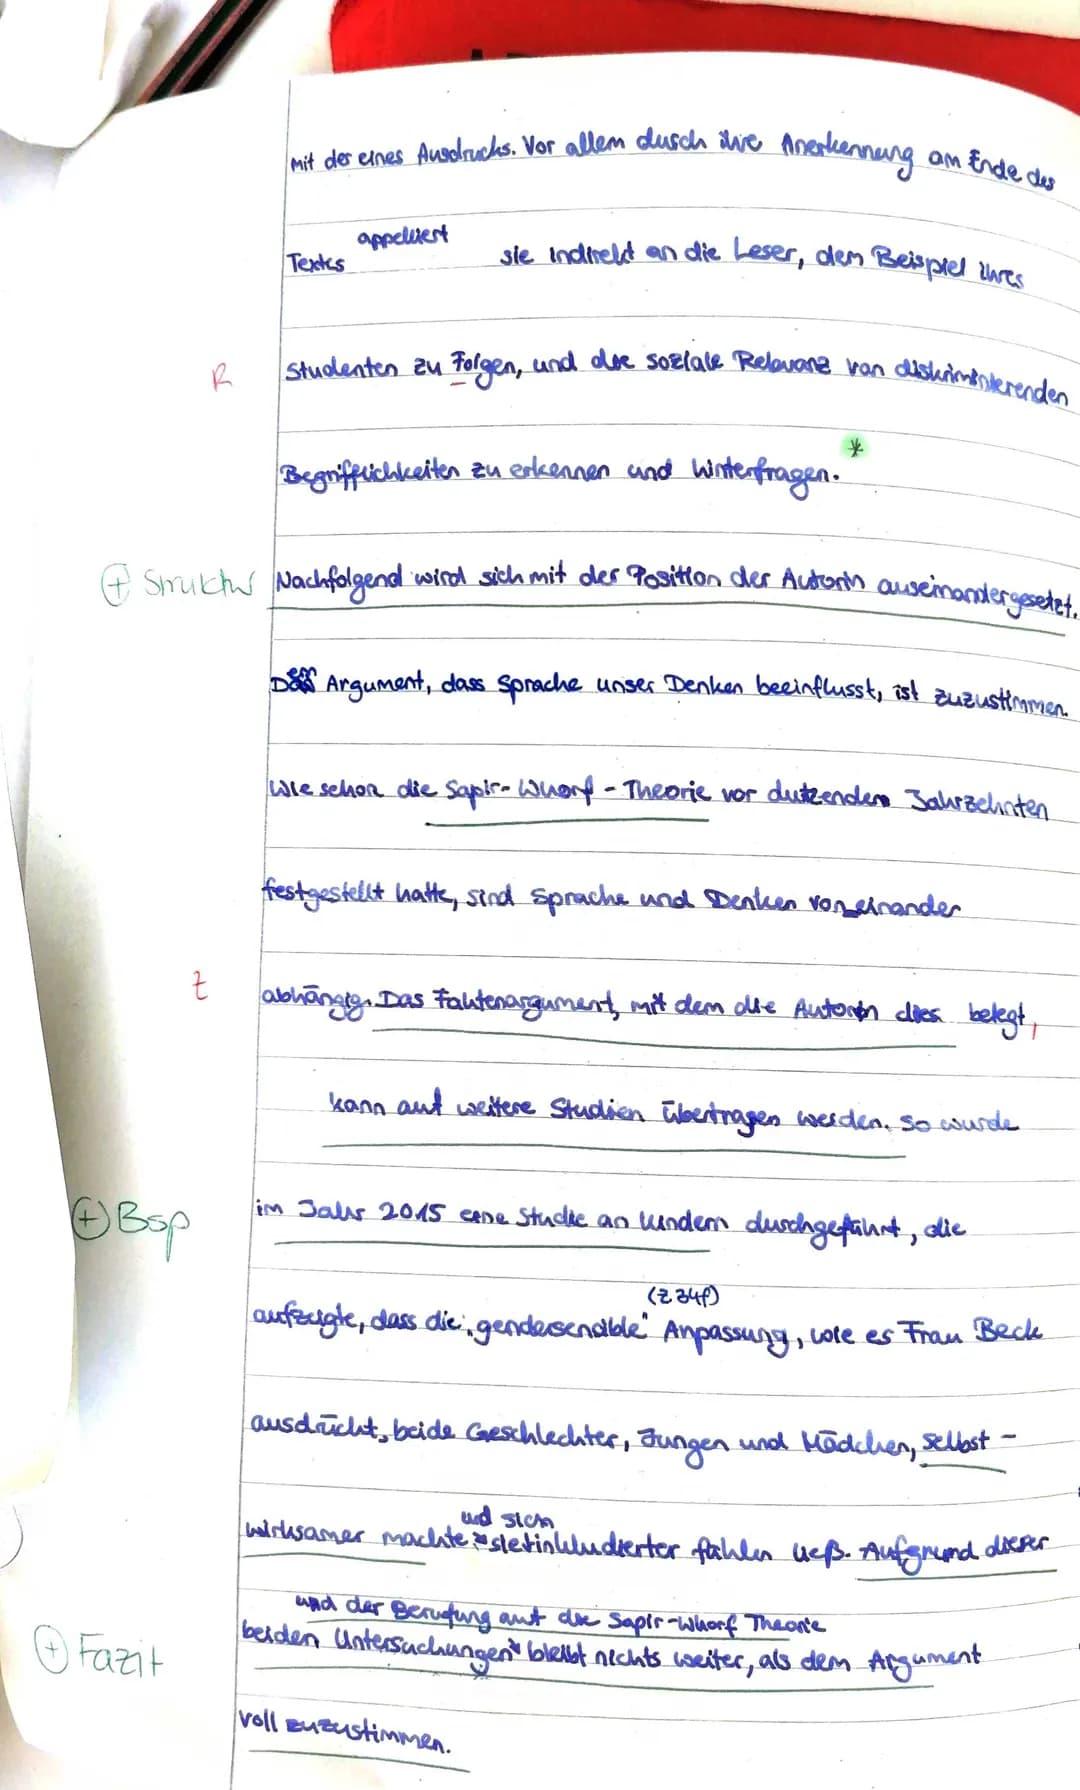 mit der eines Ausdrucks. Vor allem durch ihre Anerkennung am Ende des
appelliert
Textes sie indirekt an die Leser, dem Beispiel ihres
R Studenten zu Folgen, und die soziale Relevanz von diskriminierenden
Begrifflichkeiten zu erkennen und hinterfragen. *
+ Struktur Nachfolgend wird sich mit der Position der Autorin auseinandergesetzt.
Argument, dass Sprache unser Denken beeinflusst, ist zuzustimmen.
Wie schon die Sapir-Whorf-Theorie vor dutzenden Jahrzehnten
festgestellt hatte, sind Sprache und Denken voneinander
Z abhängig. Das Faktenargument, mit dem die Autorin dies belegt,
kann auf weitere Studien übertragen werden. So wurde
+ Bsp im Jahr 2015 eine Studie an Kindern durchgeführt, die
(Z 34f)
aufzeigte, dass die „gendersensible" Anpassung, wie es Frau Beck
ausdrückt, beide Geschlechter, Jungen und Mädchen, selbst-
und sich
wirksamer machte sie inkludierter fühlen ließ. Aufgrund dieser
und der Berufung auf die Sapir-Whorf Theorie
+ Fazit beiden Untersuchungen bleibt nichts weiter, als dem Argument
voll zuzustimmen.